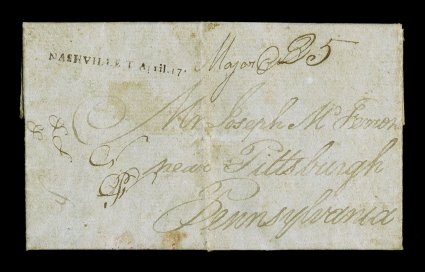 NASHVILLE T April.17. Major 25
Mr Joseph
near Pittsburgh
Pennsylvania